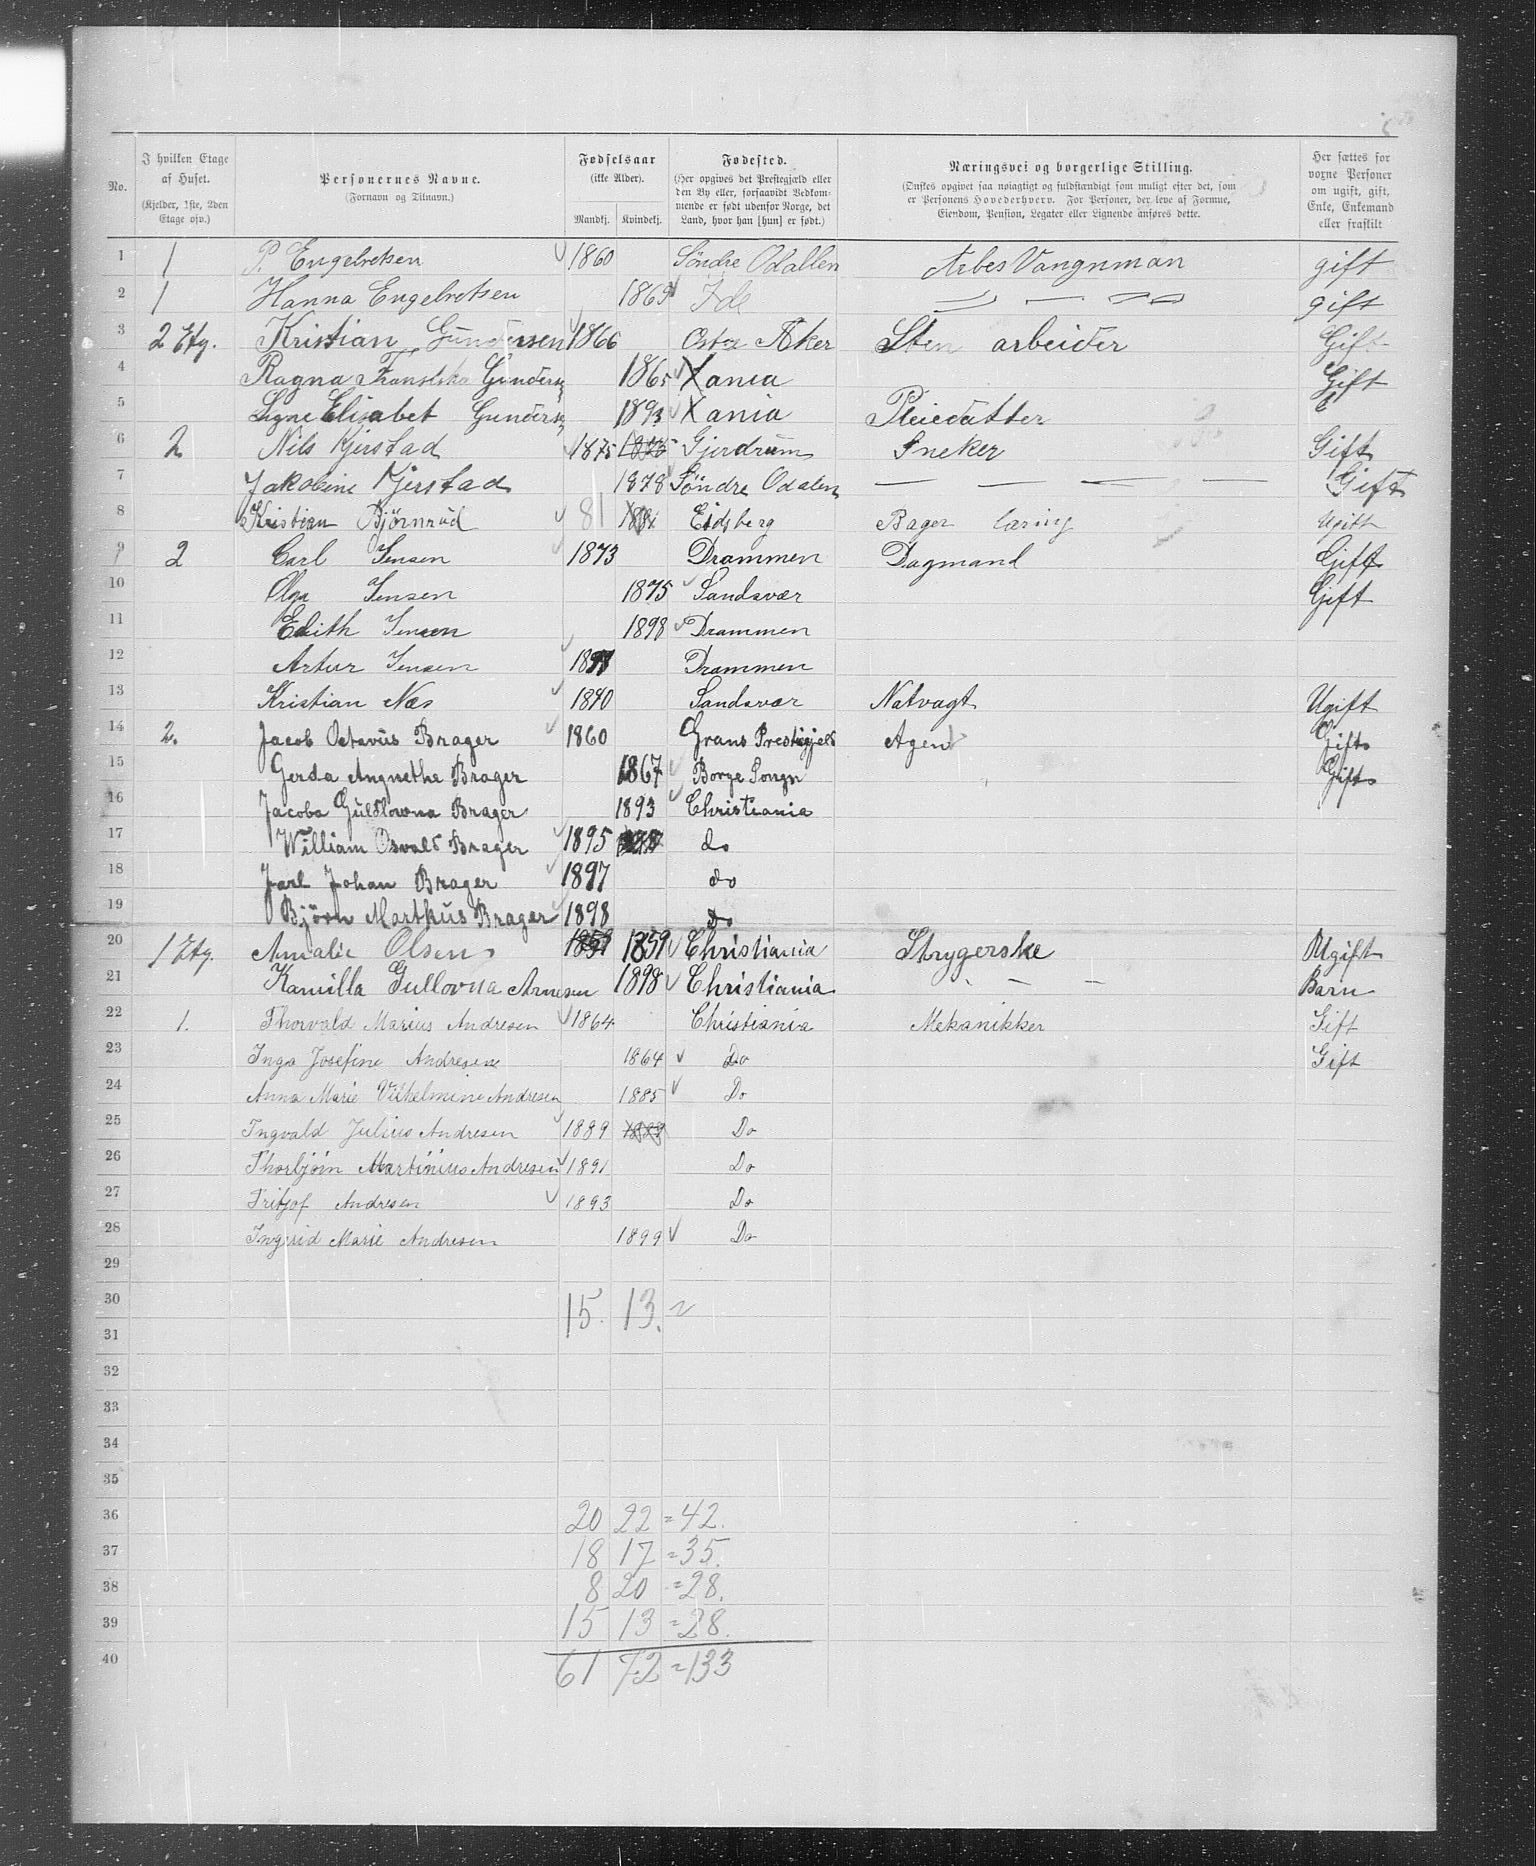 No.
I hvilken Etage af Huset. (Kjelder, 1ste, 2den Etage osv.)
Personernes Navne. (Fornavn og Tilnavn.)
Fødselsaar (ikke Alder). Mandkj. Kvindekj.
Fødested. (Her opgives det Prestegjæld eller den By eller, forsaavidt Vedkommende er født udenfor Norge, det Land, hvor han [hun] er født.)
Næringsvei og borgerlige Stilling. (Ønskes opgivet saa nøiagtigt og fuldstændigt som muligt efter det, som er Personens Hovederhverv. For Personer, der leve af Formue, Eiendom, Pension, Legater eller Lignende anføres dette.
Her sættes for voxne Personer om ugift, gift, Enke, Enkemand eller fraskilt
1 1 P. Engebretsen 1860 Söndre Odallen Arbes Vangnman gift
2 1 Hanna Engebretsen 1869 Ide gift
3 2 Etg. Kristian Gundersen 1866 Østre Aker Sten arbeider Gift
4 Ragna Gunders 1865 Xania Gift
5 Signe Elisabet Gunders 1893 Xania Pleiedatter
6 2 Nils Kjerstad 1875 1875 Gjerdrum Sneker Gift
7 Jakobine Kjerstad 1878 Söndre Odalen — — — — Gift
8 Kristian Björnrud 81 Eidsberg Bager læring Ugift
9 2 Carl Jensen 1873 Drammen Dagmand Gift
10 Olga Jensen 1875 Sandsvær Gift
11 Edith Jensen 1898 Drammen
12 Artur Jensen Drammen
13 Kristian Næs 1840 Sandsvær Natvagt Ugift
14 2. Jacob Octavus Brager 1860 Grans Prestegjeld Agent Gift
15 Gerda Angnethe Brager 1867 Borge Songn Gift
16 Jacoba Guldlowna Brager 1893 Christiania
17 William Osvald Brager 1895 do
18 Jarl Johan Brager 1897 do
19 Björn Marthus Brager 1898 Do
20 1 Etg. Amalie Olsen 1859 1859 Christiania Strygerske Ugift
21 Kamilla Gullovna Arnesen 1898 Christiania - — - Barn
22 1. Thorvald Marius Andresen 1864 Christiania Mekanikker Gift
23 Inga Josefine Andresen 1864 Do Gift
24 Anna Marie Vilhelmine Andresen 1885 Do
25 Ingvald Julius Andresen 1889 1889 Do
26 Thorbjörn Martinius Andresen 1891 Do
27 Fritjof Andresen 1893 Do
28 Ingerid Marie Andresen 1899 Do
29
30 15. 13.
31
32
33
34
35
36 20 22 = 42.
37 18 17 = 35.
38 8 20 = 28.
39 15 13 = 28.
40 61 72 = 133